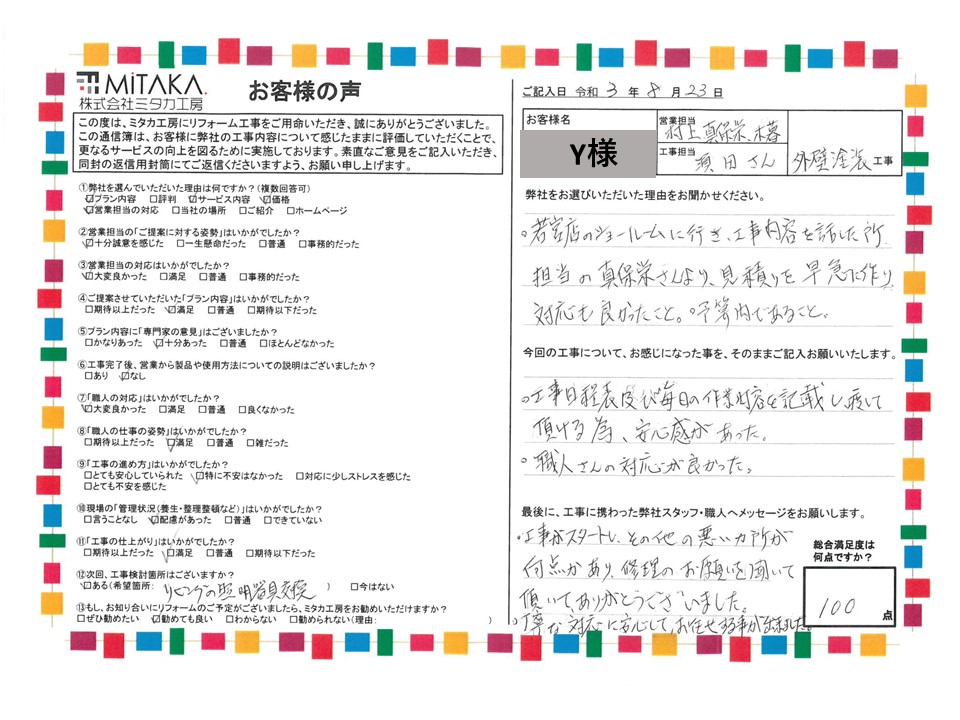 MiTAKA.
株式会社ミタカ工房
お客様の声
この度は、ミタカ工房にリフォーム工事をご用命いただき、誠にありがとうございました。
この通信簿は、お客様に弊社の工事内容について感じたままに評価していただくことで、
更なるサービスの向上を図るために実施しております。素直なご意見をご記入いただき、
同封の返信用封筒にてご返信くださいますよう、お願い申し上げます。
①弊社を選んでいただいた理由は何ですか?(複数回答可)
☑プラン内容 □評判 ☑サービス内容 ☑価格
☑営業担当の対応 □当社の場所 □ご紹介 □ホームページ
②営業担当の「ご提案に対する姿勢」はいかがでしたか?
☑十分誠意を感じた □一生懸命だった □普通 □事務的だった
③営業担当の対応はいかがでしたか?
☑大変良かった □満足 □普通 □事務的だった
④ご提案させていただいた「プラン内容」はいかがでしたか?
□期待以上だった ☑満足 □普通 □期待以下だった
⑤プラン内容に「専門家の意見」はございましたか?
□かなりあった ☑十分あった □普通 □ほとんどなかった
⑥工事完了後、営業から製品や使用方法についての説明はございましたか?
□あり ☑なし
⑦「職人の対応」はいかがでしたか?
☑大変良かった □満足 □普通 □良くなかった
⑧「職人の仕事の姿勢」はいかがでしたか?
□期待以上だった ☑満足 □普通 □雑だった
⑨「工事の進め方」はいかがでしたか?
□とても安心していられた ☑特に不安はなかった □対応に少しストレスを感じた
□とても不安を感じた
⑩現場の「管理状況(養生・整理整頓など)」はいかがでしたか?
□言うことなし ☑配慮があった □普通 □できていない
⑪「工事の仕上がり」はいかがでしたか?
□期待以上だった ☑満足 □普通 □期待以下だった
⑫次回、工事検討箇所はございますか?
☑ある(希望箇所: リビングの照明器具交換 ) □今はない
⑬もし、お知り合いにリフォームのご予定がございましたら、ミタカ工房をお勧めいただけますか?
□ぜひ勧めたい ☑勧めても良い □わからない □勧められない(理由: )
ご記入日 令和 3 年 8 月 23 日
お客様名
Y様
営業担当
村上真保栄、木暮
工事担当
須田さん
外壁塗装工事
弊社をお選びいただいた理由をお聞かせください。
。若宮店のショールームに行き、工事内容を話した所
担当の真保栄さんより、見積りを早急に作り
対応も良かったこと。。予算内であること。
今回の工事について、お感じになった事を、そのままご記入お願いいたします。
。工事日程表及び毎日の作業内容を記載し渡して
頂ける為、安心感があった。
。職人さんの対応が良かった。
最後に、工事に携わった弊社スタッフ・職人へメッセージをお願いします。
・工事がスタートし、その他の悪いカ所が
何点かあり、修理のお願いを聞いて
頂いてありがとうございました。
。丁寧な対応に安心して、お任せする事が出来ました。
総合満足度は
何点ですか?
100 点